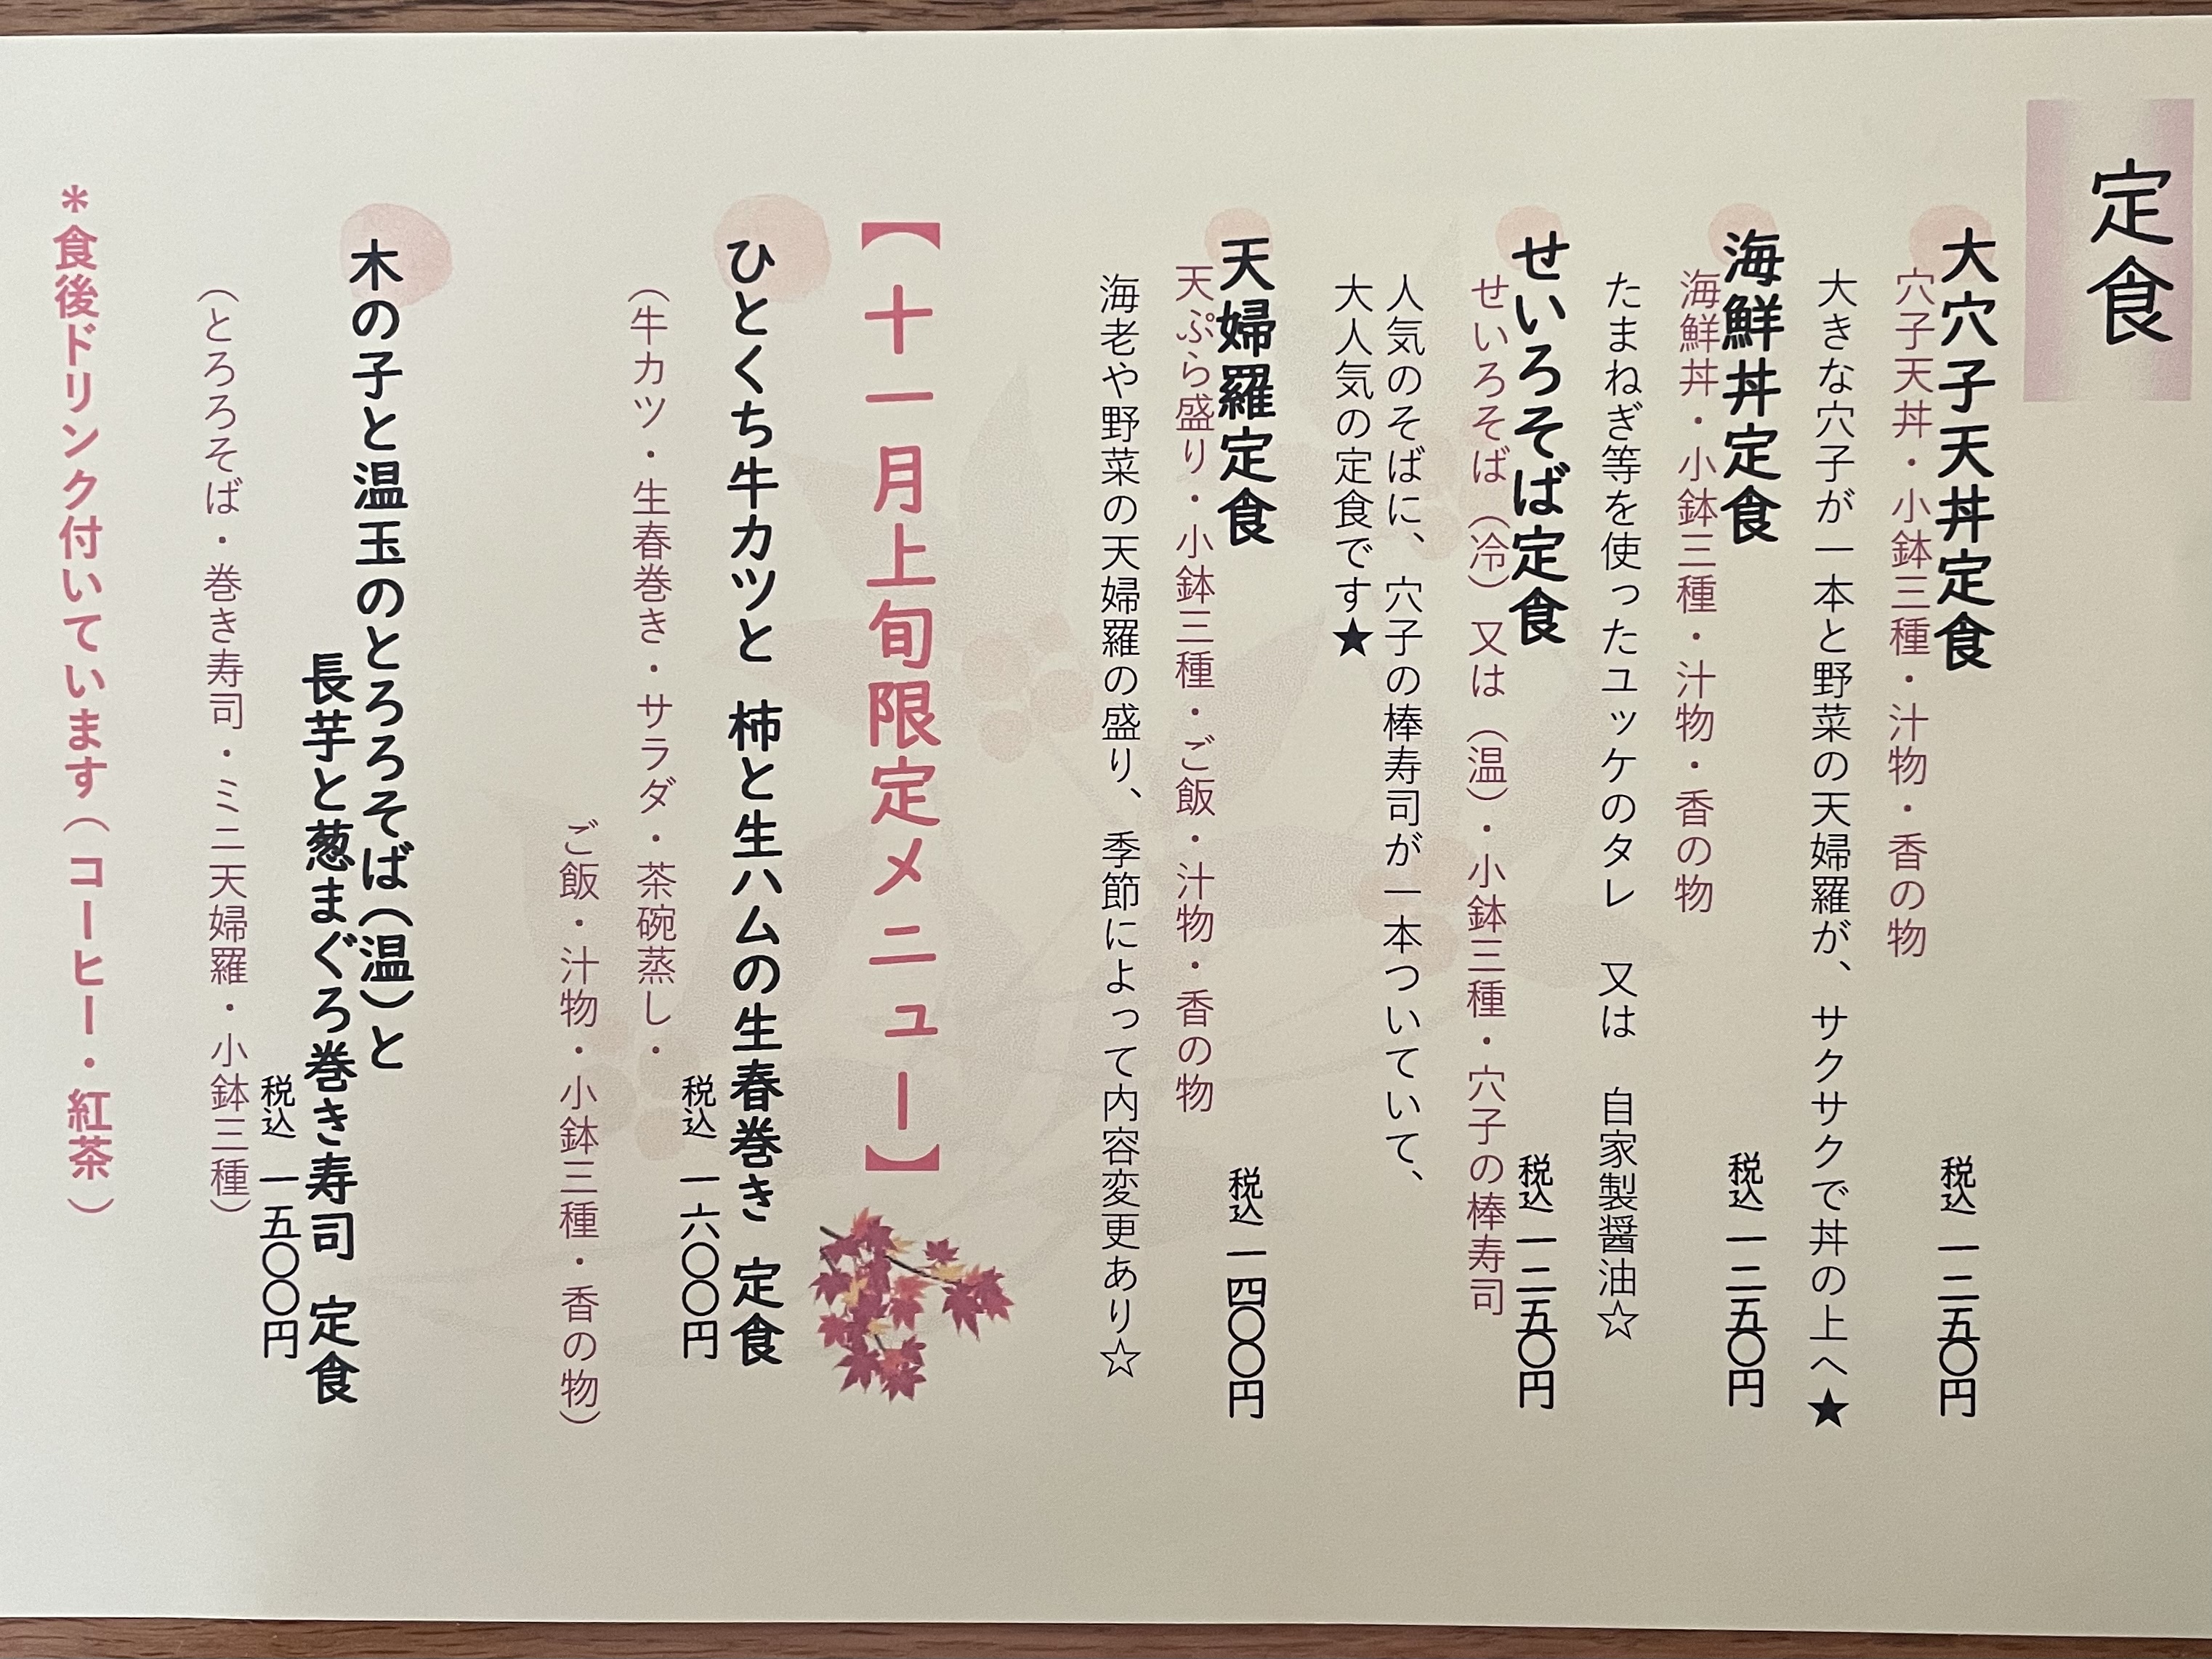 定食
大穴子天丼定食
税込 一二五〇円
穴子天丼・小鉢三種・汁物・香の物
大きな穴子が一本と野菜の天婦羅が、サクサクで丼の上へ★
海鮮丼定食
税込 一二五〇円
海鮮丼・小鉢三種・汁物・香の物
たまねぎ等を使ったユッケのタレ 又は 自家製醤油☆
せいろそば定食
税込 一二五〇円
せいろそば（冷）又は（温）・小鉢三種・穴子の棒寿司
人気のそばに、穴子の棒寿司が一本ついていて、
大人気の定食です★
天婦羅定食
税込 一四〇〇円
天ぷら盛り・小鉢三種・ご飯・汁物・香の物
海老や野菜の天婦羅の盛り、季節によって内容変更あり☆
【十一月上旬限定メニュー】
ひとくち牛カツと 柿と生ハムの生春巻き 定食
税込 一六〇〇円
（牛カツ・生春巻き・サラダ・茶碗蒸し・
ご飯・汁物・小鉢三種・香の物）
木の子と温玉のとろろそば（温）と
長芋と葱まぐろ巻き寿司 定食
税込 一五〇〇円
（とろろそば・巻き寿司・ミニ天婦羅・小鉢三種）
＊食後ドリンク付いています（コーヒー・紅茶）